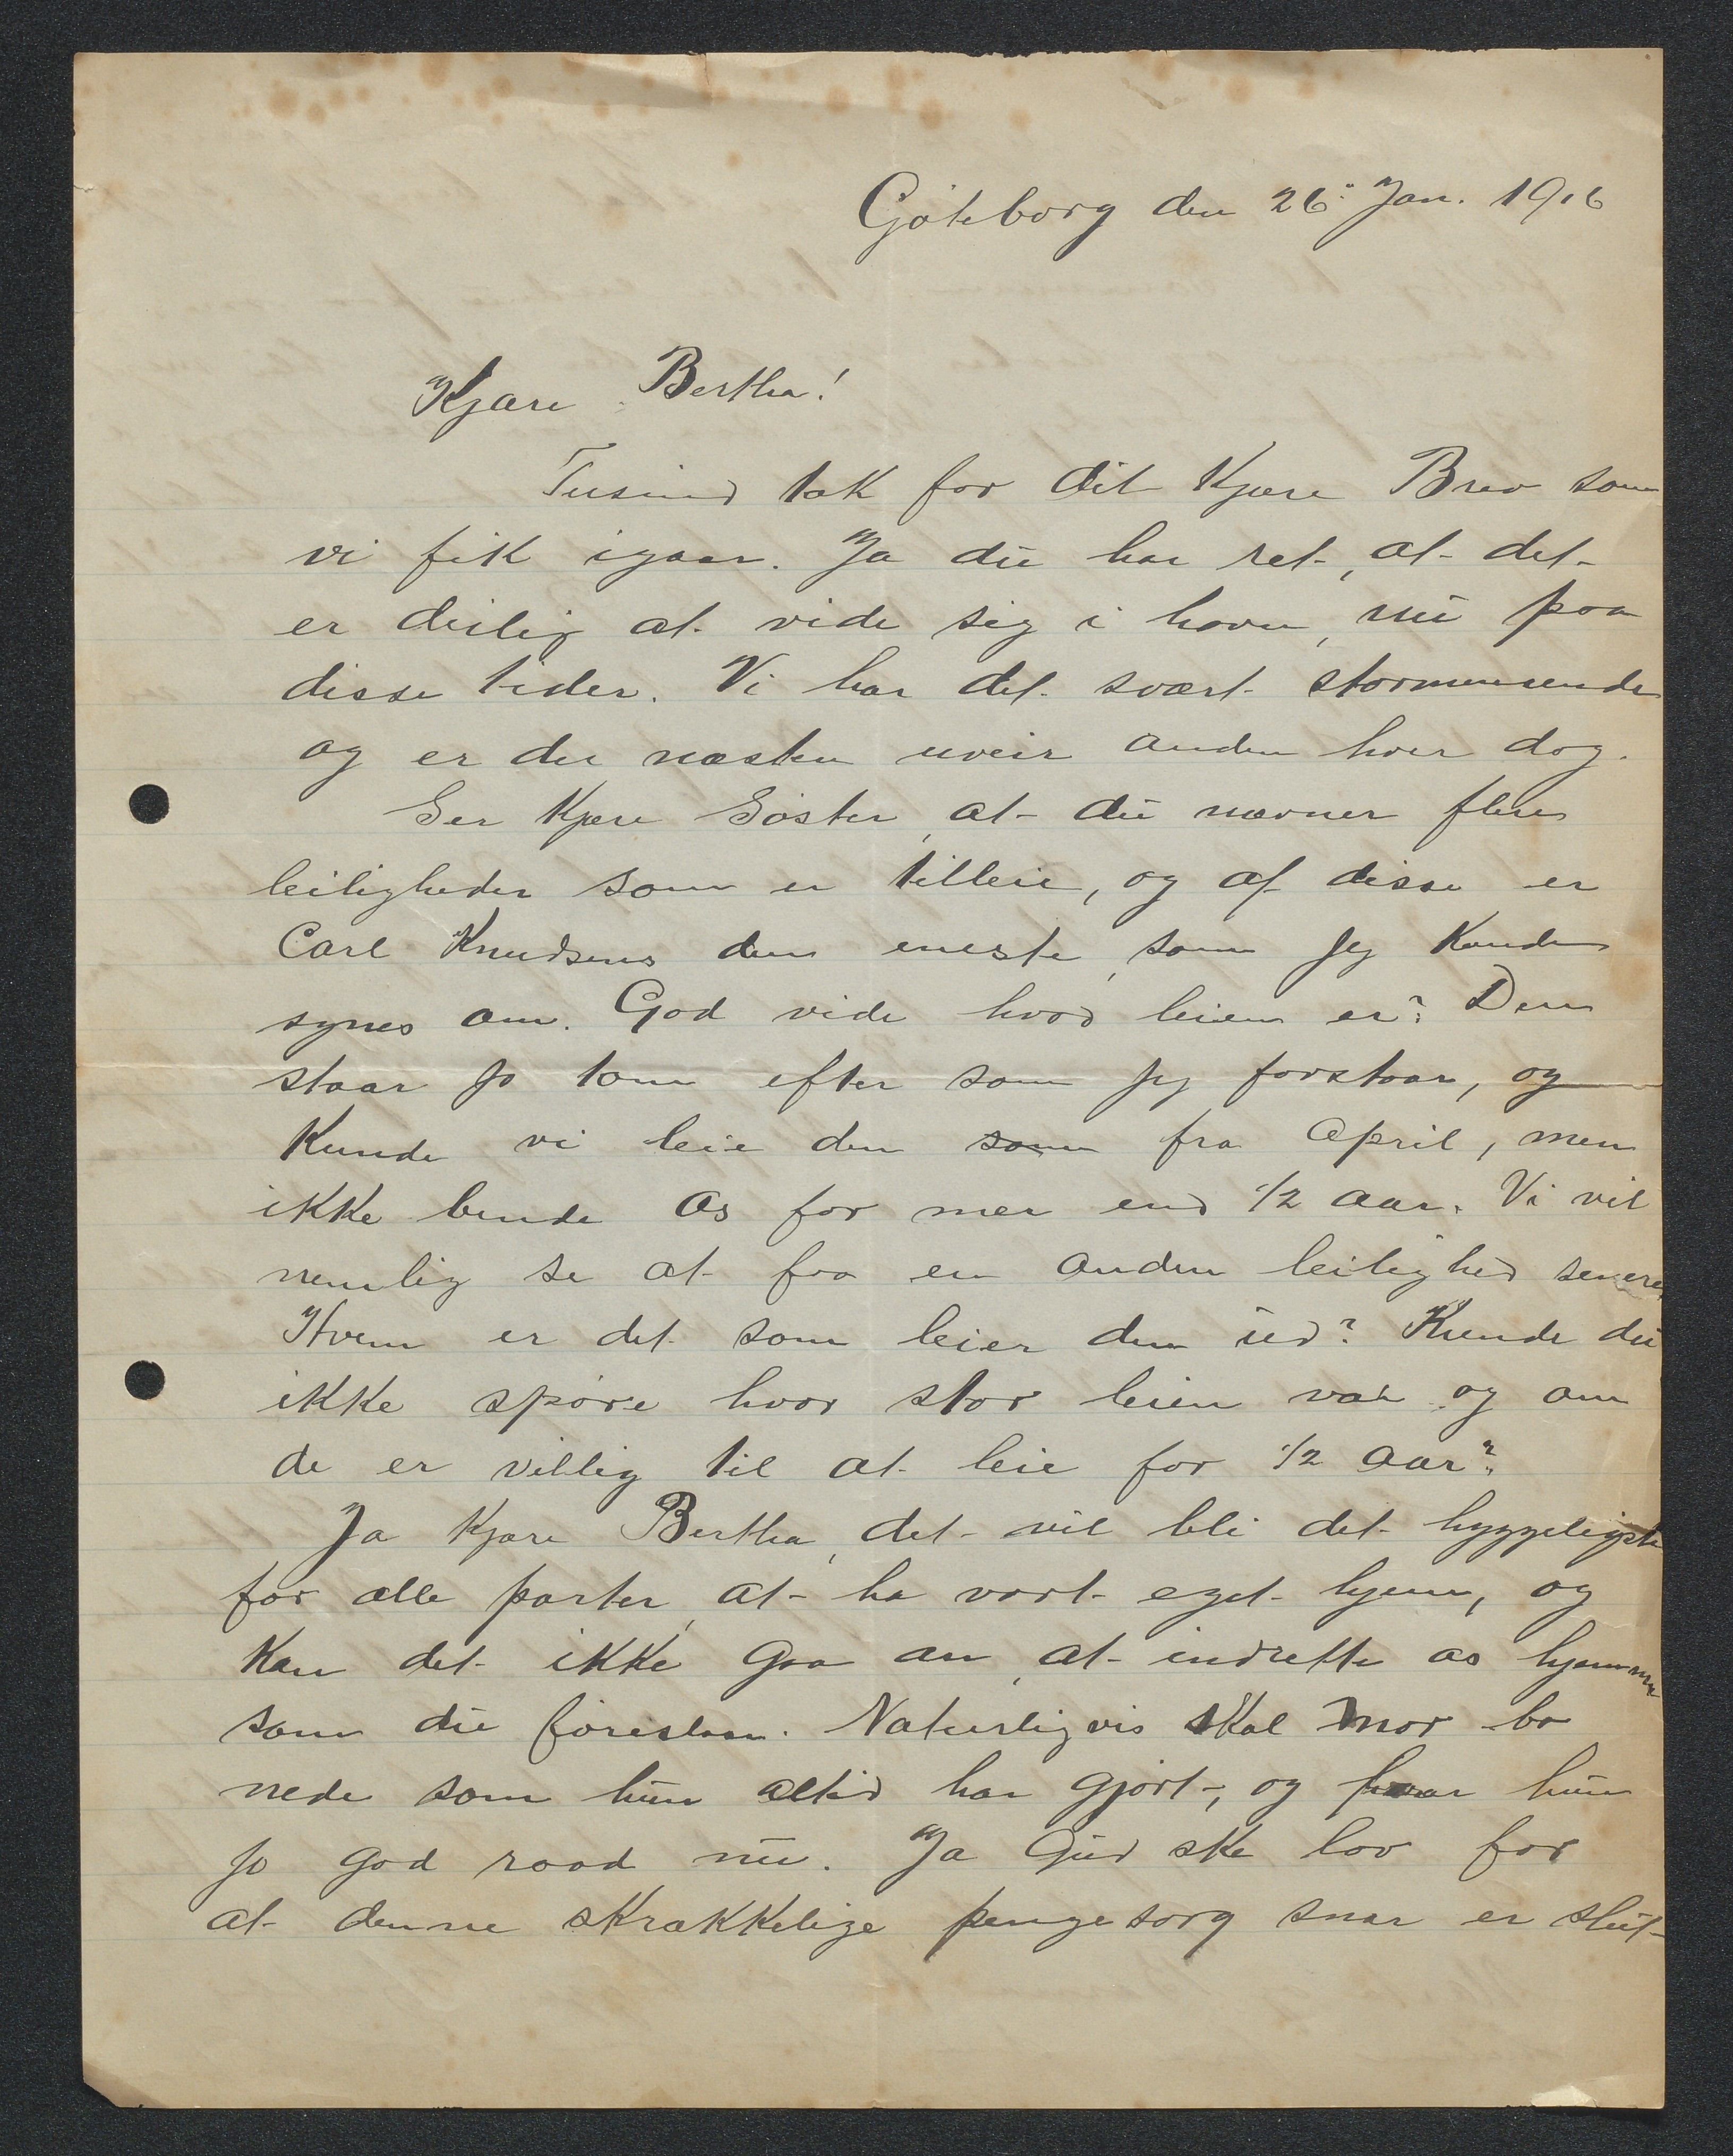 Göteborg den 26' Jan. 1916
Kjære Bertha!
Tusind tak for dit kjære Brev som
vi fik igaar. Ja du har ret, at det
er deilig at vide sig i havn, nu paa
disse tider. Vi har det svært stormensende
og er der næsten uveir anden hver dag.
Ser kjære Söster, at du nævner flere
leiligheder som er tilleie, og af disse er
Carl Knudsens den eneste, som jeg kunde
synes om. Gad vide hvad leien er? Den
staar jo tom efter som jeg forstaar, og
kunde vi leie den som fra April, men
ikke binde os for mer end 1/2 aar. Vi vil
nemlig se at faa en anden leilighed senere,
Hvem er det som leier den ud? Kunde du
ikke spöre hvor stor leien var og om
de er villig til at leie for 1/2 aar?
Ja kjære Bertha, det vil bli det hyggeligste
for alle parter, at ha vort eget hjem, og
kan det ikke gaa an, at indrette os hjemme
som du foreslaar. Naturligvis skal mor bo
nede som hun altid har gjort, og har hun
jo god raad nu. Ja Gud ske lov for
at denne skrækkelige pengesorg snar er slut